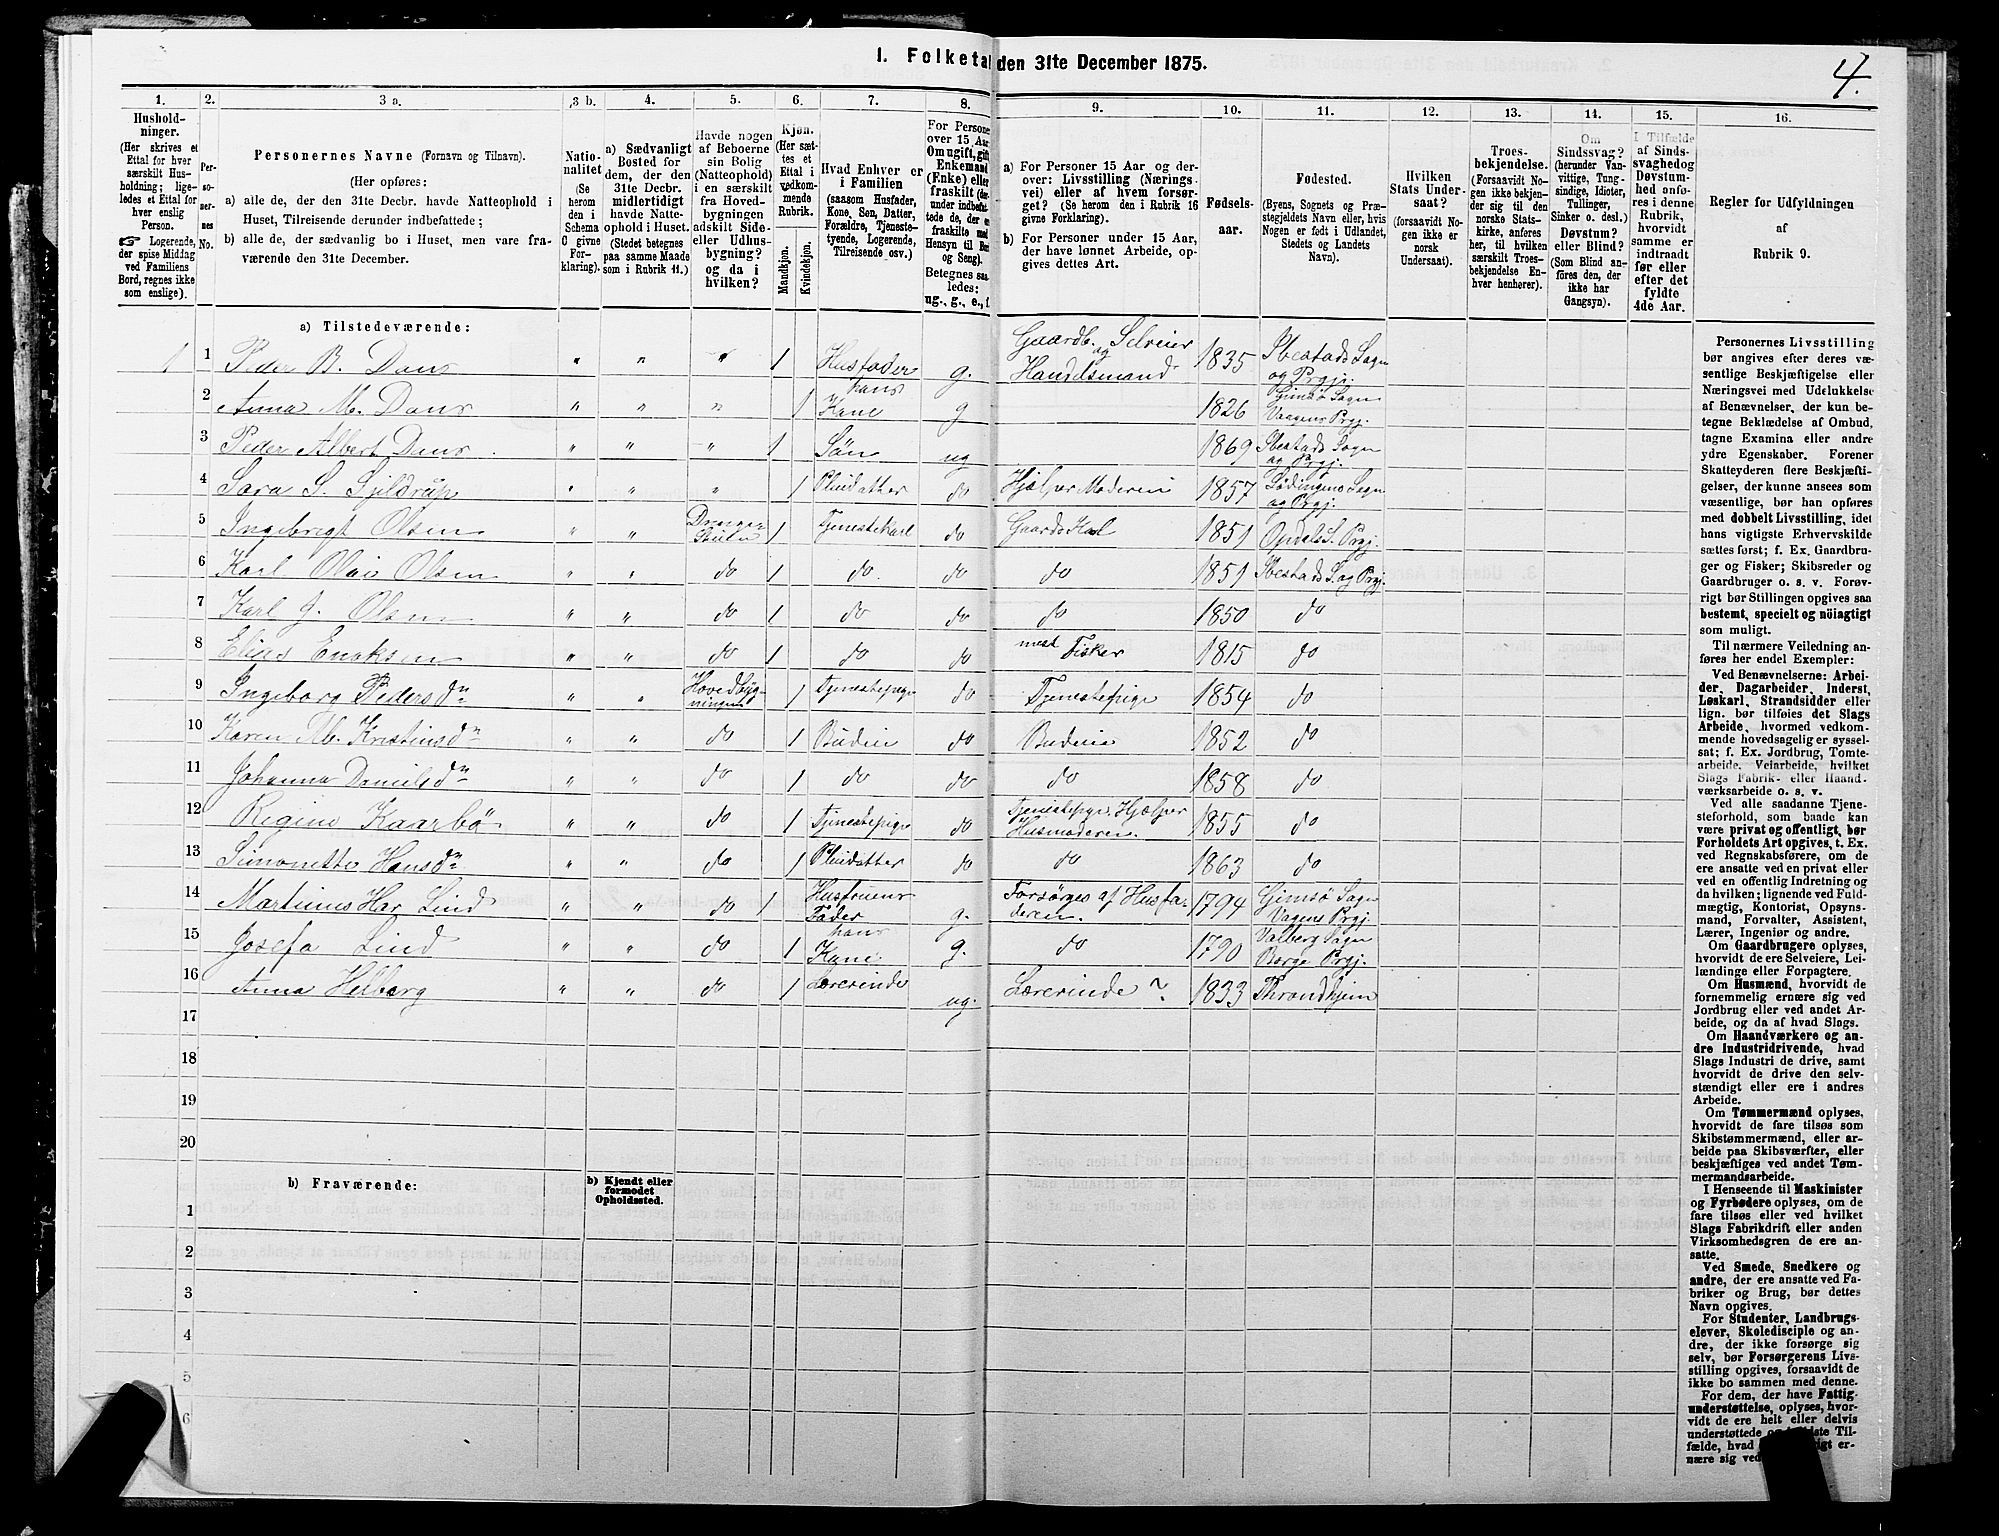 1. Folketal den 31te December 1875.
4.
1. 2. 3 a. 3 b. 4. 5. 6. 7. 8. 9. 10. 11. 12. 13. 14. 15. 16.
Hushold-
ninger.
(Her skrives et
Ettal for hver
særskilt Hus-
holdning; lige-
ledes et Ettal for
hver enslig
Person.
☞ Logerende,
der spise Middag
ved Familiens
Bord, regnes ikke
som enslige).
Per-
so-
ner-
nes
No.
Personernes Navne (Fornavn og Tilnavn).
(Her opføres:
a) alle de, der den 31te Decbr. havde Natteophold i
Huset, Tilreisende derunder indbefattede;
b) alle de, der sædvanlig bo i Huset, men vare fra-
værende den 31te December.
Natio-
nalitet
(Se
herom
den i
Schema
C givne
For-
klaring).
a) Sædvanligt
Bosted for
dem, der den
31te Decbr.
midlertidigt
havde Natte-
ophold i Huset.
(Stedet betegnes
paa samme Maade
som i Rubrik 11.)
Havde nogen
af Beboerne
sin Bolig
(Natteophold)
i en særskilt
fra Hoved-
bygningen
adskilt Side-
eller Udhus-
bygning?
og da i
hvilken?
Kjøn.
(Her sæt-
tes et
Ettal i
vedkom-
mende
Rubrik.
Mandkjøn.
Kvindekjøn.
Hvad Enhver er
i Familien
(saasom Husfader,
Kone, Søn, Datter,
Forældre, Tjeneste-
tyende, Logerende,
Tilreisende osv.)
For Persone
over 15 Aar
Om ugift, gift
Enkemand
(Enke) eller
fraskilt
Betegnes saa-
ledes:
ug., g., e., f.
a) For Personer 15 Aar og der-
over: Livsstilling (Nærings-
vei) eller af hvem forsør-
get? (Se herom de i Rubrik 16
givne Forklaring).
b) For Personer under 15 Aar,
der have lønnet Arbeide, op-
gives dettes Art.
Fødsels-
aar.
Fødested.
(Byens, Sognets og Præ-
stegjeldets Navn eller, hvis
Nogen er født i Udlandet,
Stedets og Landets
Navn).
Hvilken
Stats Under-
saat?
(forsaavidt No-
gen ikke er
norsk
Undersaat).
Troes-
bekjendelse.
(Forsaavidt No-
gen ikke bekjen-
der sig til den
norske Stats-
kirke, anføres
her, til hvilken
særskilt Troes-
bekjendelse En-
hver henhører).
Om
Sindssvag?
(herunder Van-
vittige, Tung-
sindige, Idioter,
Tullinger,
Sinker o. desl.)
Døvstum?
eller Blind?
(Som Blind an-
føres den, der
ikke har
Gangsyn).
I Tilfælde
af Sinds-
svaghedog
Døvstum-
hed anfø-
res i denne
Rubrik,
hvorvidt
samme er
indtraadt
før eller
efter det
fyldte
4de Aar.
Regler for Udfyldningen
af
Rubrik 9.
a) Tilstedeværende:
1 1 Peder B. Dons " " " 1 Husfader g. Gaardb. Selveier og Handelsmand 1835 Ibestads Sogn og Prgj.
2 Anna M. Dons " " " 1 hans Kone g 1826 Gimsø Sogn Vaagens Prgj.
3 Peder Albert Dons " " " 1 Søn ug 1869 Ibestads Sogn og Prgj.
4 Sara S. " " " 1 Pleiedatter do Hjælper Moderen 1857 Lødingens Sogn og Prgj.
5 Ingebrigt Olsen " " 1 Tjenestekarl do Gaards Karl 1851 Opdals S. Prgj.
6 Karl Olai Olsen " " do 1 do. do do 1851 Ibestads S. og Prgj.
7 Karl J. Olsen " " do 1 do do do 1850 do
8 Elias Enoksen " " do 1 do do mest Fisker 1815 do
9 Ingeborg Pedersdn " " Hovedbyg-ningen 1 Tjenestepige do Tjenestepige 1854 do
10 Karen M. Kristinsdn " " do 1 Budeie do Budeie 1852 do
11 Johanna Danielsdn " " do 1 do do do 1858 do
12 Regine Kaarbø " " do 1 Tjenestepige do Tjenestepige, Hjælper Husmoderen. 1855 do
13 Simonette Hansdn " " do 1 Pleiedatter do do 1863 do
14 Martinus Lind " " do 1 Hustruens Fader g. Forsørges af Husfa-deren. 1794 Gimsø Sogn Vagens Prgj.
15 Josefa Lind " " do 1 hans Kone g. do 1790 Valberg Sogn Borge Prgj.
16 Anna Helberg " " do 1 Lærerinde ug. Lærerinde ? 1833 Throndhjem
17
18
19
20
b) Fraværende:
b) Kjendt eller
formodet
Opholdssted.
1
2
3
4
5
6
Personernes Livsstilling
bør angives efter deres væ-
sentlige Beskjæftigelse eller
Næringsvei med Udelukkelse
af Benævnelser, der kun be-
tegne Beklædelse af Ombud,
tagne Examina eller andre
ydre Egenskaber. Forener
Skatteyderen flere Beskjæfti-
gelser, der kunne ansees som
væsentlige, bør han opføres
med dobbelt Livsstilling, idet
hans vigtigste Erhvervskilde
sættes først; f. Ex. Gaardbru-
ger og Fisker; Skibsreder og
Gaardbruger o. s. v. Forøv-
rigt bør Stillingen opgives saa
bestemt, specielt og nöiagtigt
som muligt.
Til nærmere Veiledning an-
føres her endel Exempler:
Ved Benævnelserne: Arbei-
der, Dagarbeider, Inderst,
Løskarl, Strandsidder eller
lign. bør tilføies det Slags
Arbeide, hvormed vedkom-
mende hovedsagelig er syssel-
sat; f. Ex. Jordbrug, Tomte-
arbeide, Veiarbeide, hvilket
Slags Fabrik- eller Haand-
værksarbeide o. s. v.
Ved alle saadanne Tjene-
steforhold, som baade kan
være privat og offentligt, bør
Forholdets Art opgives, t. Ex.
ved Regnskabsførere, om de
ere ansatte ved en privat eller
ved en offentlig Indretning og
da hvilken; lignende ved Fuld-
mægtig, Kontorist, Opsyns-
mand, Forvalter, Assistent,
Lærer, Ingeniør og andre.
Om Gaardbrugere oplyses,
hvorvidt de ere Selveiere, Lei-
lændinge eller Forpagtere.
Om Husmænd, hvorvidt de
fornemmelig ernære sig ved
Jordbrug eller ved andet Ar-
beide, og da af hvad Slags.
Om Haandværkere og an-
dre Industridrivende, hvad
Slags Industri de drive, samt
hvorvidt de drive den selv-
stændigt eller ere i andres
Arbeide.
Om Tømmermænd oplyses,
hvorvidt de fare tilsøs som
Skibstømmermænd, eller ar-
beide paa Skibsværfter, eller
beskjæftiges ved andet Tøm-
mermandsarbeide.
I Henseende til Maskinister
og Fyrbødere oplyses, om de
fare tilsøs eller ved hvilket
Slags Fabrikdrift eller anden
Virksomhedsgren de ere an-
satte.
Ved Smede, Snedkere og
andre, der ere ansatte ved Fa-
briker og Brug, bør dettes
Navn opgives.
For Studenter, Landbrugs-
elever, Skoledisciple og an-
dre, der ikke forsørge sig
selv, bør Forsørgerens Livs-
stilling opgives, forsaavidt de
ikke bo sammen med denne.
For dem, der have Fattig-
understøttelse, oplyses, hvor-
vidt de ere helt eller delvis
understøttede
fælde, hvad
nære sig ved